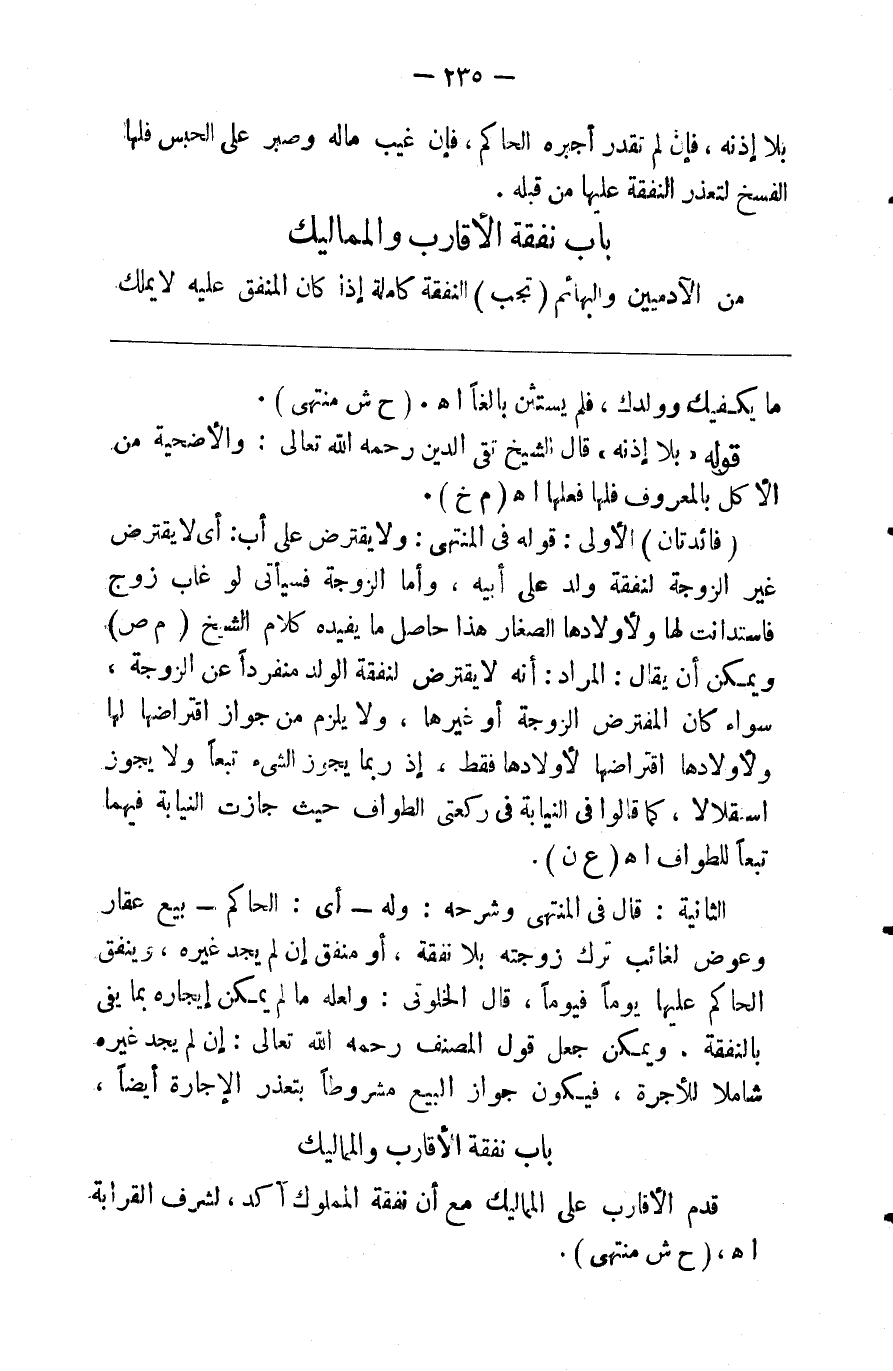 — ٢٣٥ —
بلا إذنه ، فإن لم تقدر أجبره الحاكم ، فإن غيب ماله وصبر على الحبس فلها
الفسخ لتعذر النفقة عليها من قبله .
باب نفقة الأقارب والمماليك
من الآدميين والبهائم ( تجب ) النفقة كاملة إذا كان المنفق عليه لايملك
ما يكفيك وولدك ، فلم يستثن بالغاً اهـ . ( ح ش منتهى ) .
قوله « بلا إذنه » قال الشيخ تقى الدين رحمه الله تعالى : والأضحية من
الأكل بالمعروف فلها فعلها اهـ ( م خ ) .
( فائدتان ) الأولى : قوله فى المنتهى : ولايقترض على أب : أى لايقترض
غير الزوجة لنفقة ولد على أبيه ، وأما الزوجة فسيأتى لو غاب زوج
فاستدانت لها ولأولادها الصغار هذا حاصل ما يفيده كلام الشيخ ( م ص )
ويمكن أن يقال : المراد : أنه لايقترض لنفقة الولد منفرداً عن الزوجة ،
سواء كان المفترض الزوجة أو غيرها ، ولا يلزم من جواز اقتراضها لها
ولأولادها اقتراضها لأولادها فقط ، إذ ربما يجوز الشىء تبعاً ولا يجوز
استقلالا ، كما قالوا فى النيابة فى ركعتى الطواف حيث جازت النيابة فيهما
تبعاً للطواف اهـ ( ع ن ) .
الثانية : قال فى المنتهى وشرحه : وله — أى : الحاكم — بيع عقار
وعوض لغائب ترك زوجته بلا نفقة ، أو منفق إن لم يجد غيره ، وينفق
الحاكم عليها يوماً فيوماً ، قال الخلوتى : ولعله ما لم يمكن إيجاره بما يفى
بالنفقة . ويمكن جعل قول المصنف رحمه الله تعالى : إن لم يجد غيره
شاملا للأجرة ، فيكون جواز البيع مشروطاً بتعذر الإجارة أيضاً ،
باب نفقة الأقارب والمماليك
قدم الأقارب على المماليك مع أن نفقة المملوك آكد ، لشرف القرابة
اهـ ، ( ح ش منتهى ) .